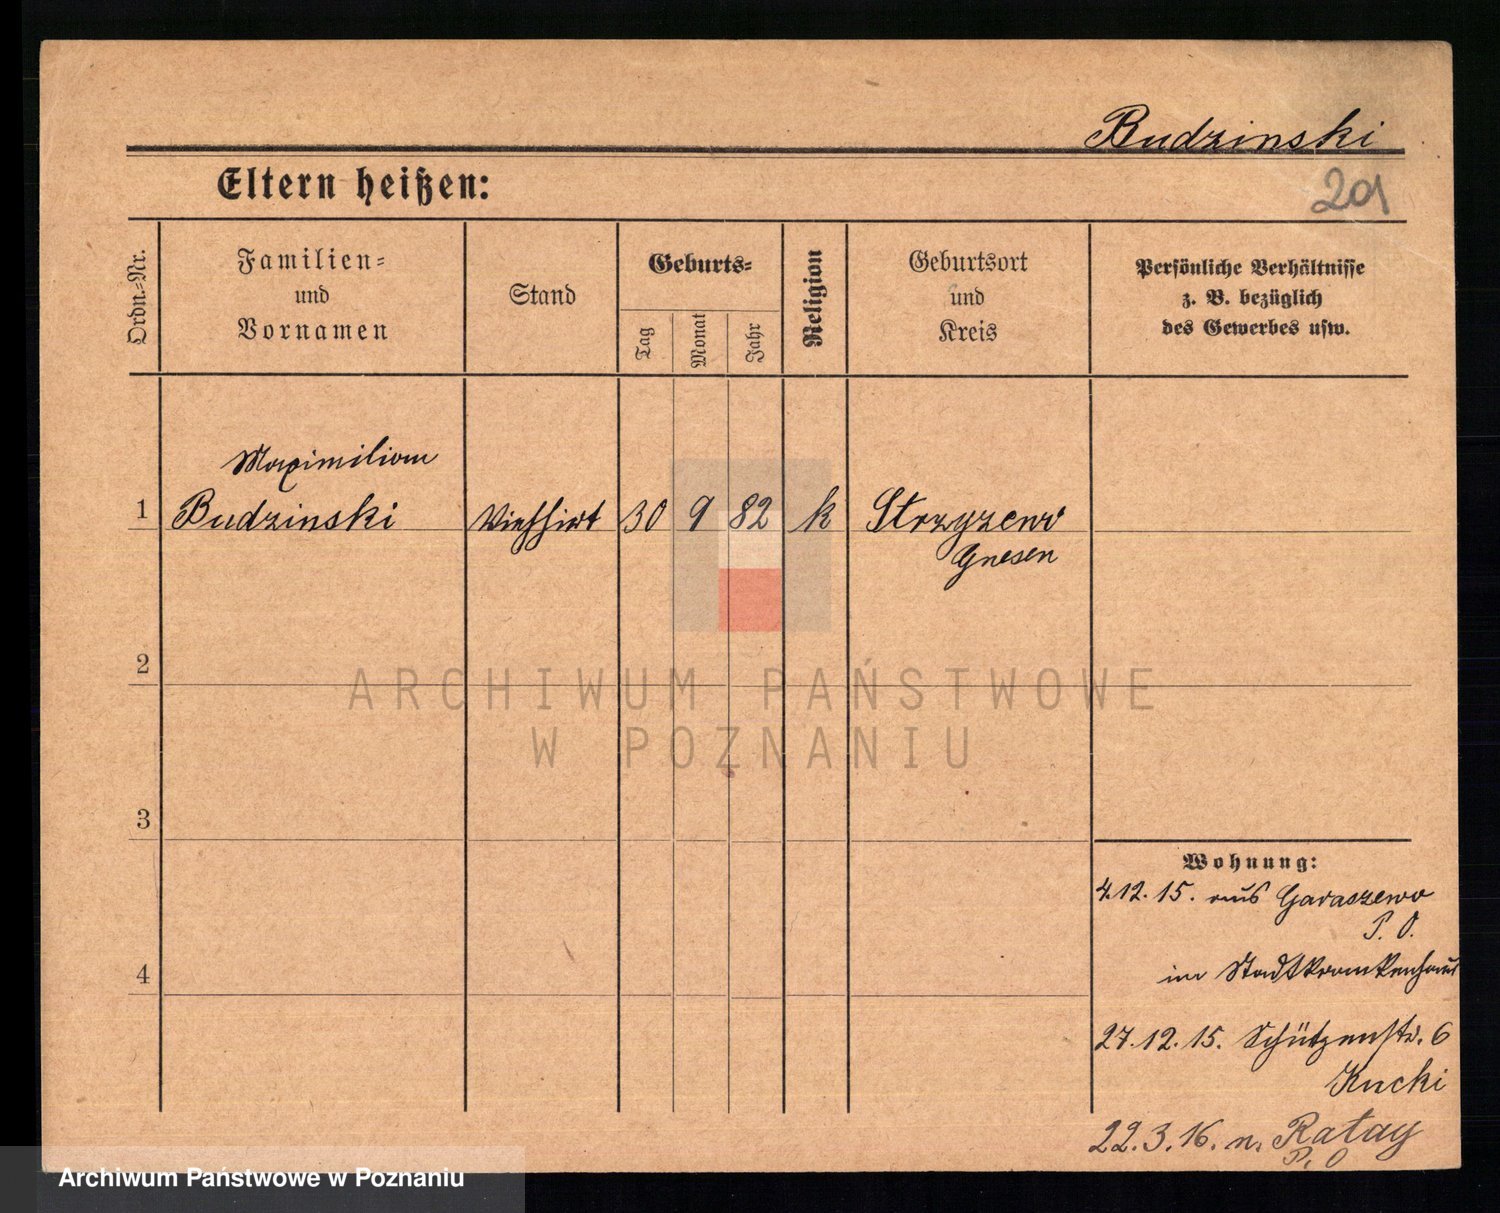 Budzinski
201
Eltern heißen:
Ordn.-Nr.
Familien-
und
Vornamen
Stand
Geburts-
Tag
Monat
Jahr
Religion
Geburtsort
und
Kreis
Persönliche Verhältnisse
z. B. bezüglich
des Gewerbes usw.
Maximilian
1 Budzinski Viehhirt 30 9 82 k Strzyzewo
Gnesen
2
3
4
ARCHIWUM PAŃSTWOWE
W POZNANIU
Wohnung:
4.12.15. aus Garaszewo
P. O.
im Stadtkrankenhaus
27.12.15. Schützenstr. 6
Kucki
22.3.16. n. Ratay
P. O
Archiwum Państwowe w Poznaniu